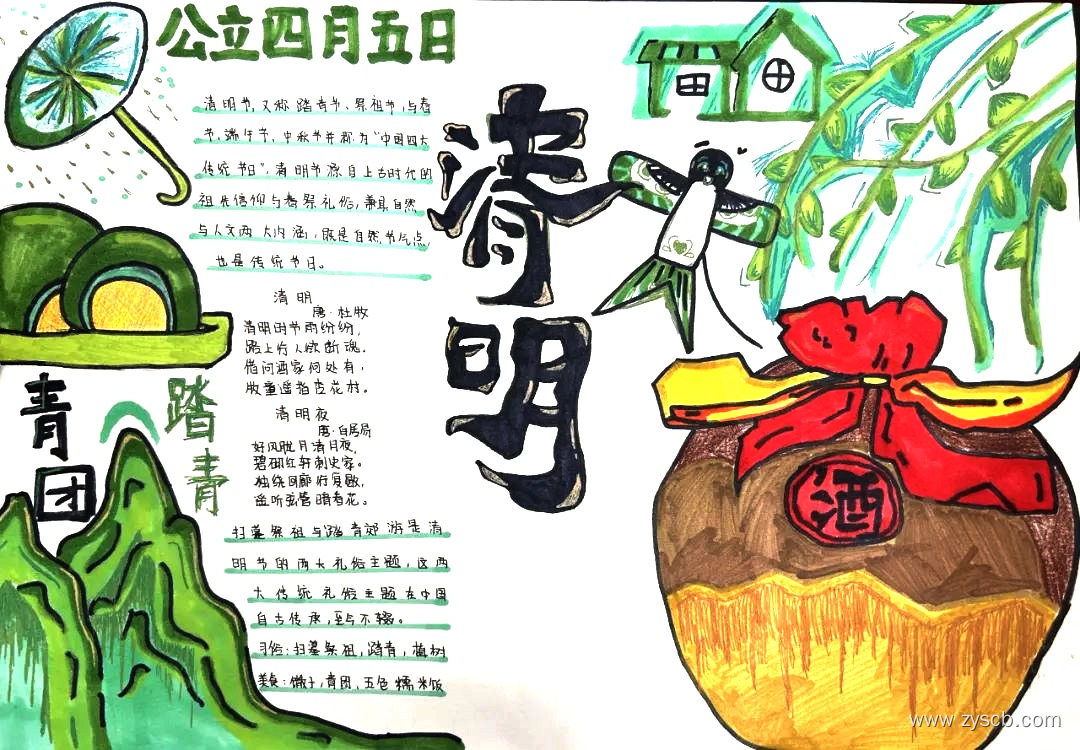 公立四月五日
清明节,又称踏青节、祭祖节,与春
节、端午节、中秋节并称为"中国四大
传统节日"。清明节源自上古时代的
祖先信仰与春祭礼俗,兼具自然
与人文两大内涵,既是自然节气点,
也是传统节日。
清明
清明
唐·杜牧
清明时节雨纷纷,
路上行人欲断魂.
借问酒家何处有,
牧童遥指杏花村。
清明夜
唐·白居易
好风胧月清明夜,
碧砌红轩刺史家。
独绕回廊行复歇,
遥听弦管暗看花。
青团
踏青
扫墓祭祖与踏青郊游是清
明节的两大礼俗主题,这两
大传统礼俗主题在中国
自古传承,至今不辍。
习俗:扫墓祭祖,踏青,植树
美食:馓子,青团,五色糯米饭
酒
www.zyscb.com